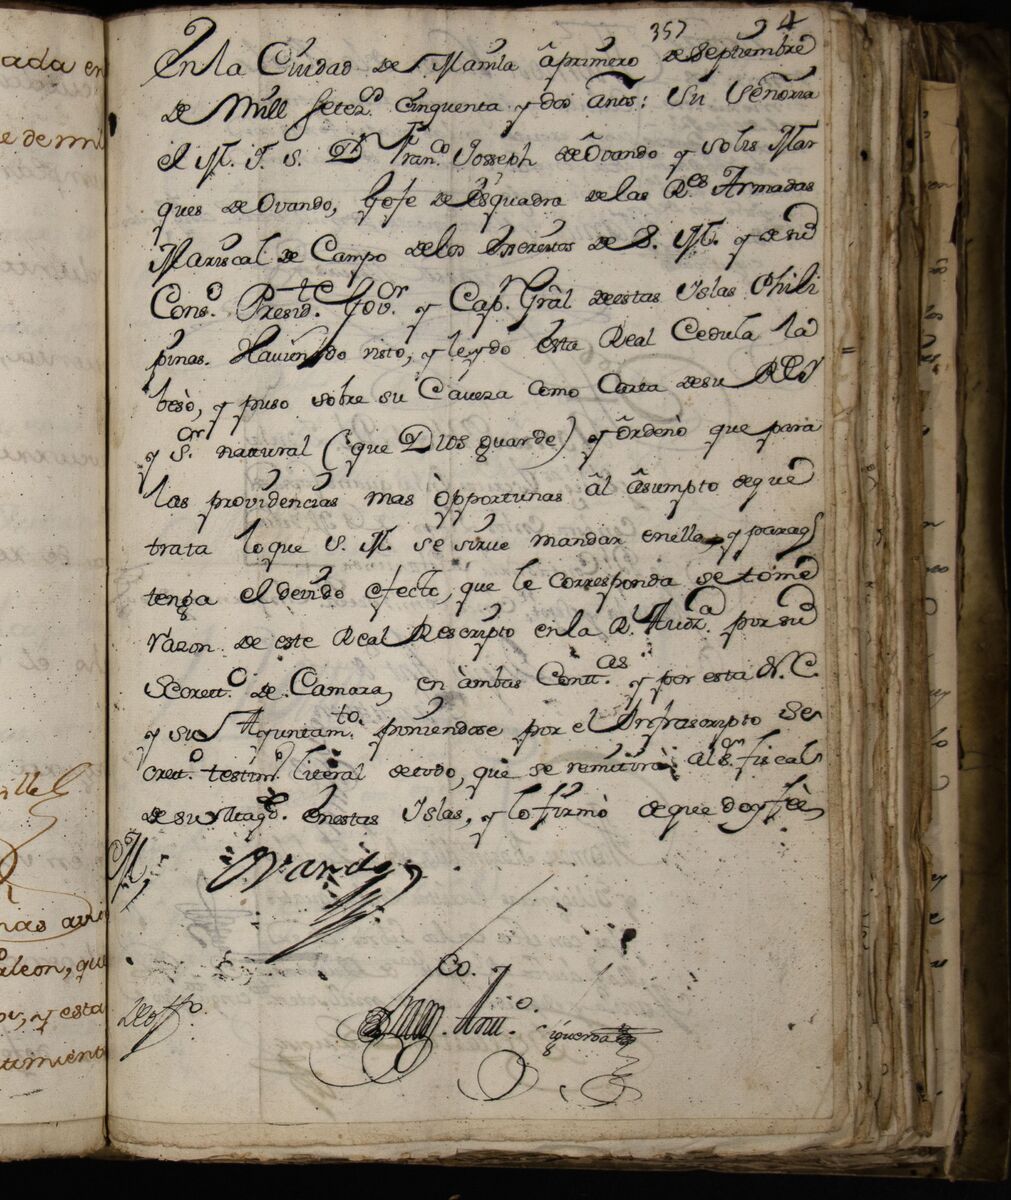 357 4
En la Ciudad de Manila â primero de Septiembre
de Mill setez.os cinquenta y dos años: Su Señoria
el M. I. S. Dn Fran.co Josseph de Ovando y Solis Mar
ques de Ovando, Gefe de Esquadra de las R.es Armadas
Mariscal de Campo de los Exercitos de S. M. y de su
Cons.o Presid.te Gov.or y Cap.n Grâl de estas Islas Phili
pinas. Haviendo visto, y leydo esta Real Cedula la
besò, y puso sobre su Caveza como Carta de su Rey
y S.or natural (que Dios guarde) y ôrdenò que para
las providencias mas òpportunas âl âsumpto de que
trata lo que S. M. se sirve mandar en ella, y para q̃
tenga el devido efecto, que le corresponda se tome
razon de este Real Rescripto en la R.l Aud.a por su
Secrett.o de Camara, en àmbas Contt.as y por esta N. C.
y su Ayuntam.to poniendose por el Infrascripto Se
crett.o testim.o literal de todo, que se remitirà al S.r fiscal
de su Mag.d en estas Islas, y lo firmò de que doy fee
M
Ovando
de off.o
Co. y
Ant.o